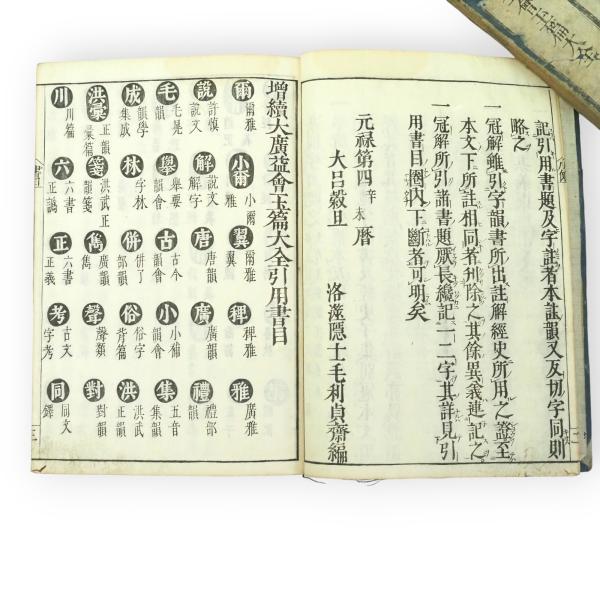 記引用書題及字註者本註韻又反切字同則
略之
一冠解雖引字韻書所出註解經史所用之證至
本文下所註相同者刋除之其餘異義連記之
一冠解所引諸書題厥長纔記一二字其詳見引
用書目圈内下斷者可明矣
元禄第四辛未曆
大呂穀旦 洛澨隱士毛利貞齋編
增續大廣益會玉篇大全引用書目
爾 爾雅 小爾 小爾雅 翼 爾雅翼 稗 稗雅 雅 廣雅
說 許慎說文 解 說文解字 唐 唐韻 廣 廣韻 禮 禮部韻
毛 毛晃韻 舉 舉要韻會 古 古今韻會 小 小補韻會 集 五音集韻
成 韻學集成 林 字林 併 併了部 俗 俗字背篇 洪 洪武正韻
洪彙 正韻彙篇 箋 洪武正韻箋 雋 廣韻雋 聲 聲類 對 對韻
川 川篇 六 六書正譌 正 六書正義 考 古文字考 同 同文鐸